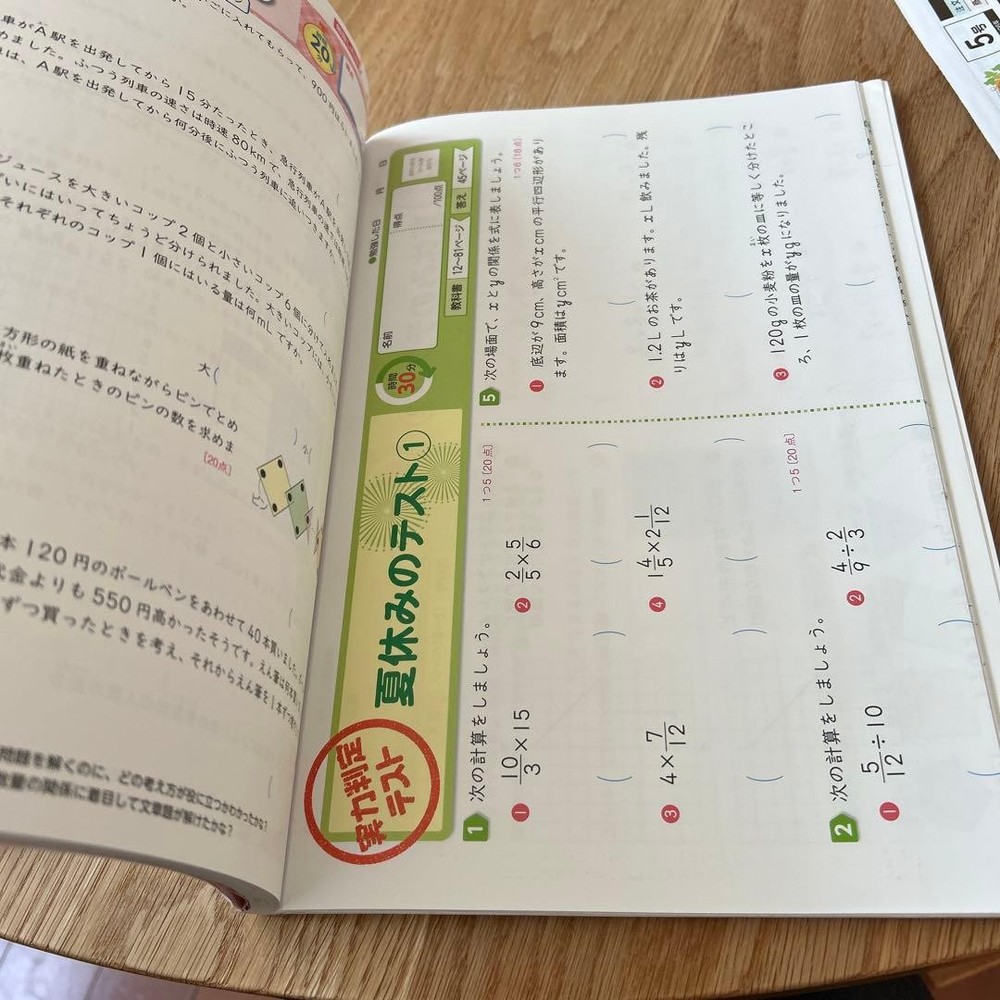 実力判定
テスト
夏休みのテスト①
時間
30分
名前
得点
/100点
●勉強した日 月 日
教科書 12〜81ページ 答え 45ページ
1 次の計算をしましょう。
1つ5〔20点〕
① 10/3×15
② 2/5×5/6
③ 4×7/12
④ 1 4/5×2 1/12
2 次の計算をしましょう。
1つ5〔20点〕
① 5/12÷10
② 4/9÷2/3
5 次の場面で、xとyの関係を式に表しましょう。
1つ6〔18点〕
① 底辺が9cm、高さがxcmの平行四辺形があり
ます。面積はycm²です。
② 1.2Lのお茶があります。xL飲みました。残
りはyLです。
③ 120gの小麦粉をx枚の皿に等しく分けたとこ
ろ、1枚の皿の量がygになりました。
20
車がA駅を出発してから15分たったとき、急行列車が
めました。ふつう列車の速さは時速80kmで、急行列車は
は、A駅を出発してから何分後にふつう列車に追いつきますか。
ジュースを大きいコップ2個と小さいコップ6個に分け
ぱいにはいってちょうど分けられました。大きいコップには
それぞれのコップ1個にはいる量は何mLですか。
大(
)小(
方形の紙を重ねながらピンでとめ
枚重ねたときのピンの数を求めま
〔20点〕
ピン
本120円のボールペンをあわせて40本買いました。
代金よりも550円高かったそうです。えん筆は何本
ずつ買ったときを考え、それからえん筆を1本ずつ
問題を解くのに、どの考え方が役に立つかわかったかな?
数量の関係に着目して文章題が解けたかな?
5号